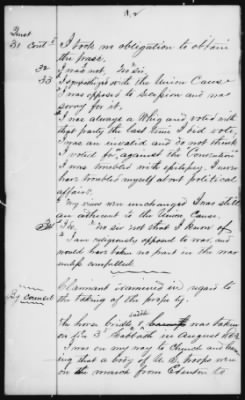 Quest
31 Cont'd I took no obligation to obtain
the pass.
32 I was not, "No sir.
33 I sympathized with the Union Cause
I was opposed to Secession and was
sorry for it.
I was always a Whig and voted with
that party the last time I did vote,
I was an invalid and do not think
I voted for, against the Convention
I was troubled with epilepsy, I never
have troubled myself about political
affairs.
" My views were unchanged I was still
an adherent to the Union Cause.
No, "no sir not that I know of
"I am religiously opposed to war, and
would have taken no part in the war
unless compelled.
By Counsel Claimant examined in regard to
the taking of the property.
saddle
The horse bridle & was taken
on the 3d Sabbath in August 1862
I was on my way to Church and
ing that a body of U. S. troops were
on the march from Clinton to